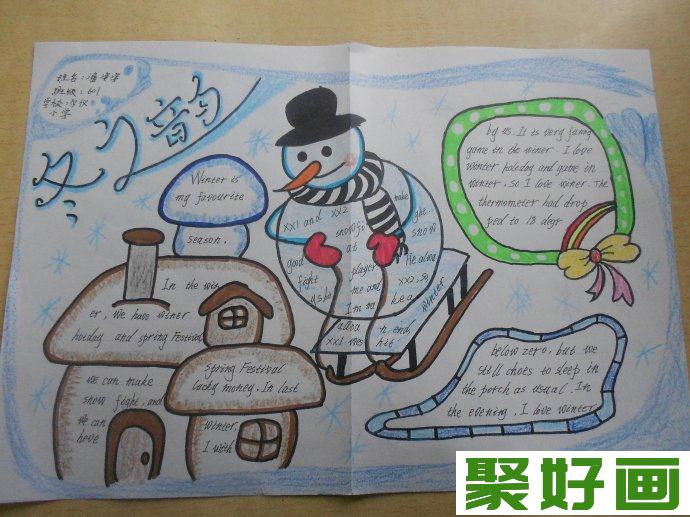 姓名:
班级:601
学校:
小学
冬之韵
Winter is
my favourite
season.
In the win
er, We have winer
hoilday and spring Festival
we can make
snow fight, and
We can
have
Spring Festival
lucky money. In last
winter,
I with
xx1 and xx2 make
snow fight
good at snow
fight player He also
is he me and xx2, so
I'm m
allou n end
xx1 Was hit
winter
by us. It is very funny
game in the winer. I love
winter holiday and game in
winter, so I love winer. The
thermometer had drop
ped to 18 degr
below zero, but we
still choes to sleep in
the porch as usual. In
the evening, I love winter
聚好画